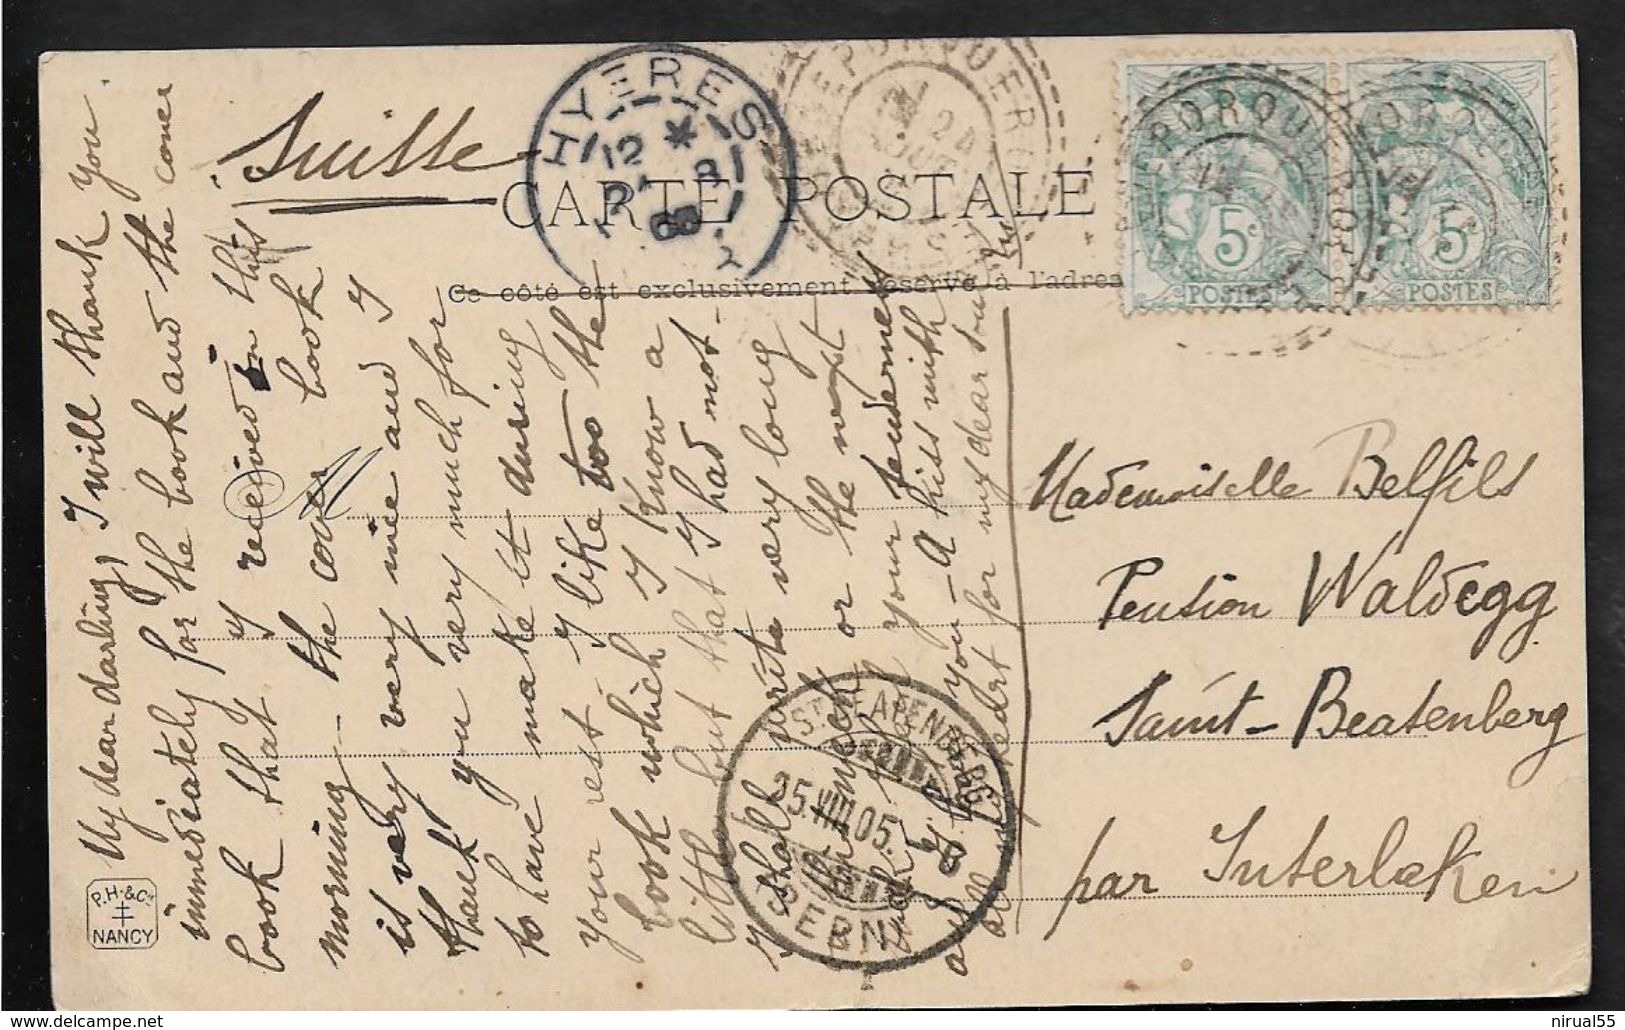 Suisse
HYERES
12 *
CARTE POSTALE
Ce côté est exclusivement réservé à l'adres
PORQUEROL
24
PORQUEROL
5c
POSTES
5c
POSTES
My dear darling, I will thank you
immediately for the book and the cover
book that I received in this
morning - the cover book
is very very nice and I
thank you very much for
to have make it during
your rest - I like too the
book which I know a
little but that I had not
I shall write very long
or the next
your tenderness
you - A kiss with
all for my dear
Mademoiselle Belfils
Pension Waldegg
Saint-Beatenberg
par Interlaken
ST. BEATENBERG
25.VIII.05.
(BERN)
P.H. & Cie
NANCY
delcampe.net
nirual55